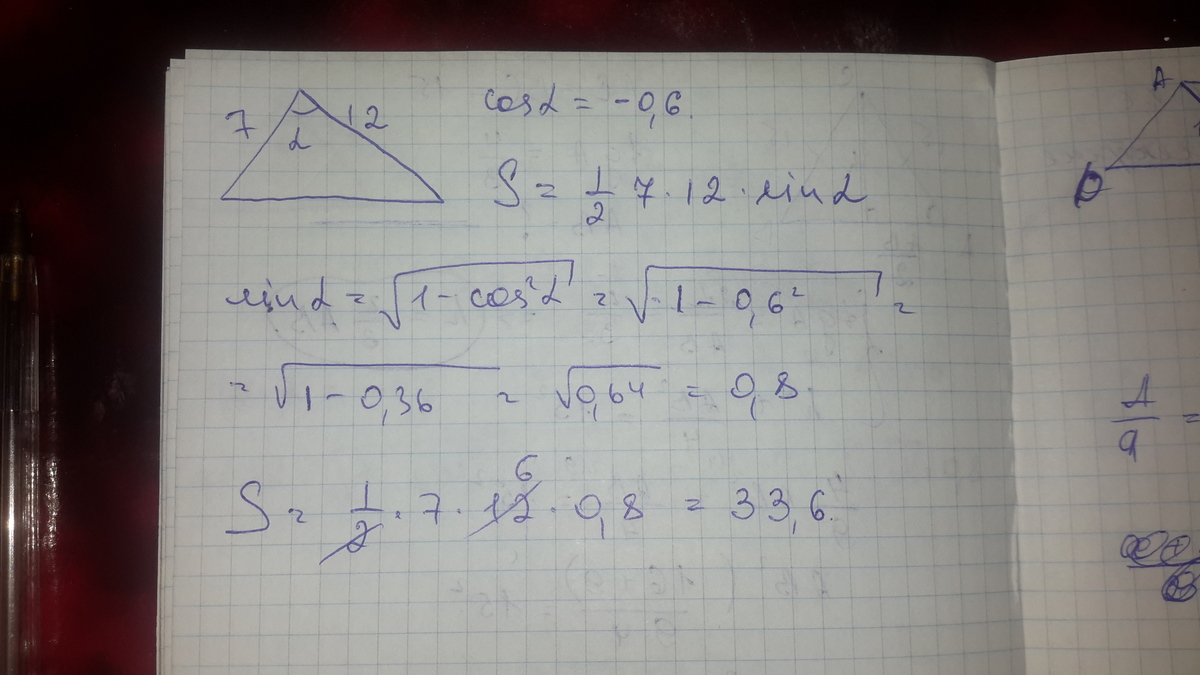 7 12 α
cos α = -0,6.
S = 1/2 7 · 12 · sin α
sin α = √(1 - cos²α) = √(1 - 0,6²) =
= √(1 - 0,36) = √0,64 = 0,8.
6
S = 1/2 · 7 · 12 · 0,8 = 33,6.
A